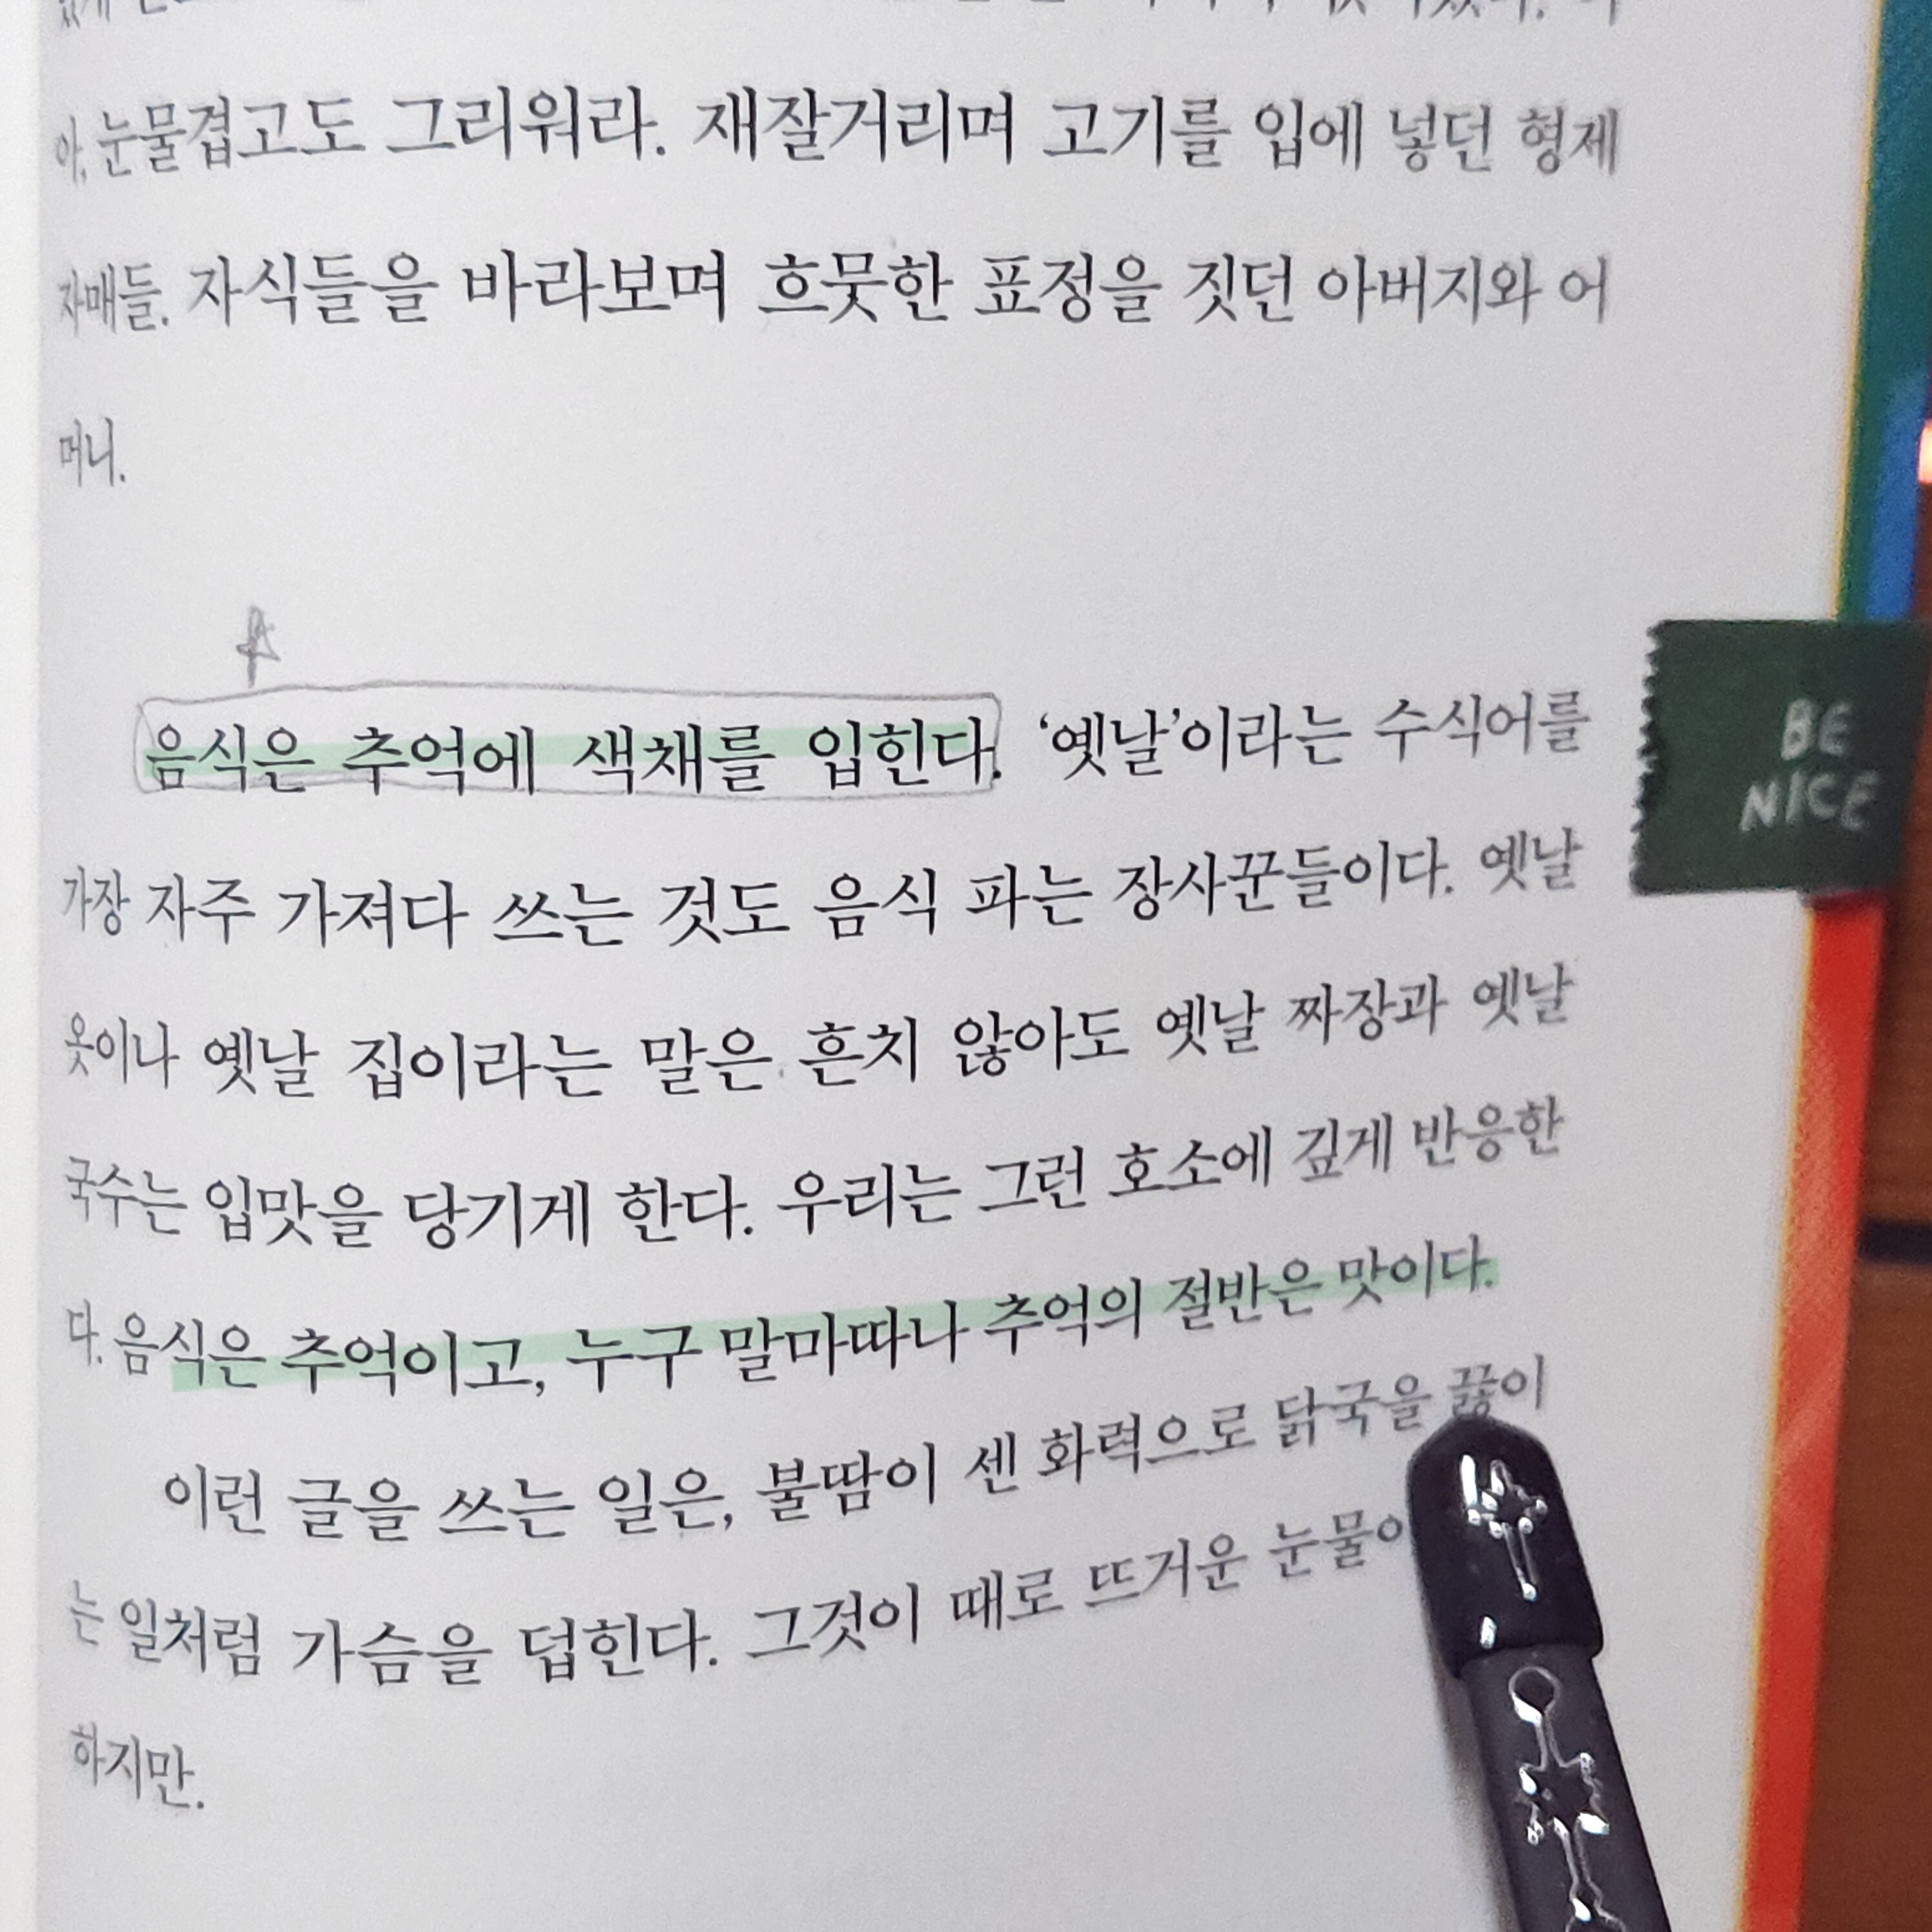 아, 눈물겹고도 그리워라. 재잘거리며 고기를 입에 넣던 형제
자매들. 자식들을 바라보며 흐뭇한 표정을 짓던 아버지와 어
머니.
음식은 추억에 색채를 입힌다. ‘옛날’이라는 수식어를
가장 자주 가져다 쓰는 것도 음식 파는 장사꾼들이다. 옛날
옷이나 옛날 집이라는 말은 흔치 않아도 옛날 짜장과 옛날
국수는 입맛을 당기게 한다. 우리는 그런 호소에 깊게 반응한
다. 음식은 추억이고, 누구 말마따나 추억의 절반은 맛이다.
이런 글을 쓰는 일은, 불땀이 센 화력으로 닭국을 끓이
는 일처럼 가슴을 덥힌다. 그것이 때로 뜨거운
하지만.
BE
NICE